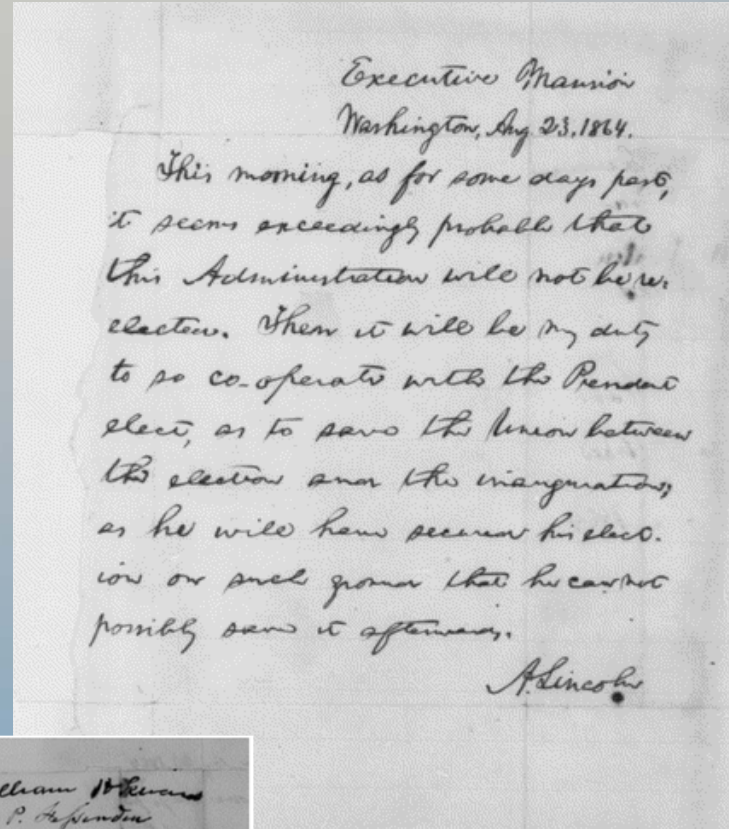 Executive Mansion
Washington, Aug 23, 1864.
This morning, as for some days past,
it seems exceedingly probable that
this Administration will not be re-
elected. Then it will be my duty
to so co-operate with the President
elect, as to save the Union between
the election and the inauguration;
as he will have secured his elect-
ion on such ground that he can not
possibly save it afterwards.
A. Lincoln
H Seward
P. Fessenden